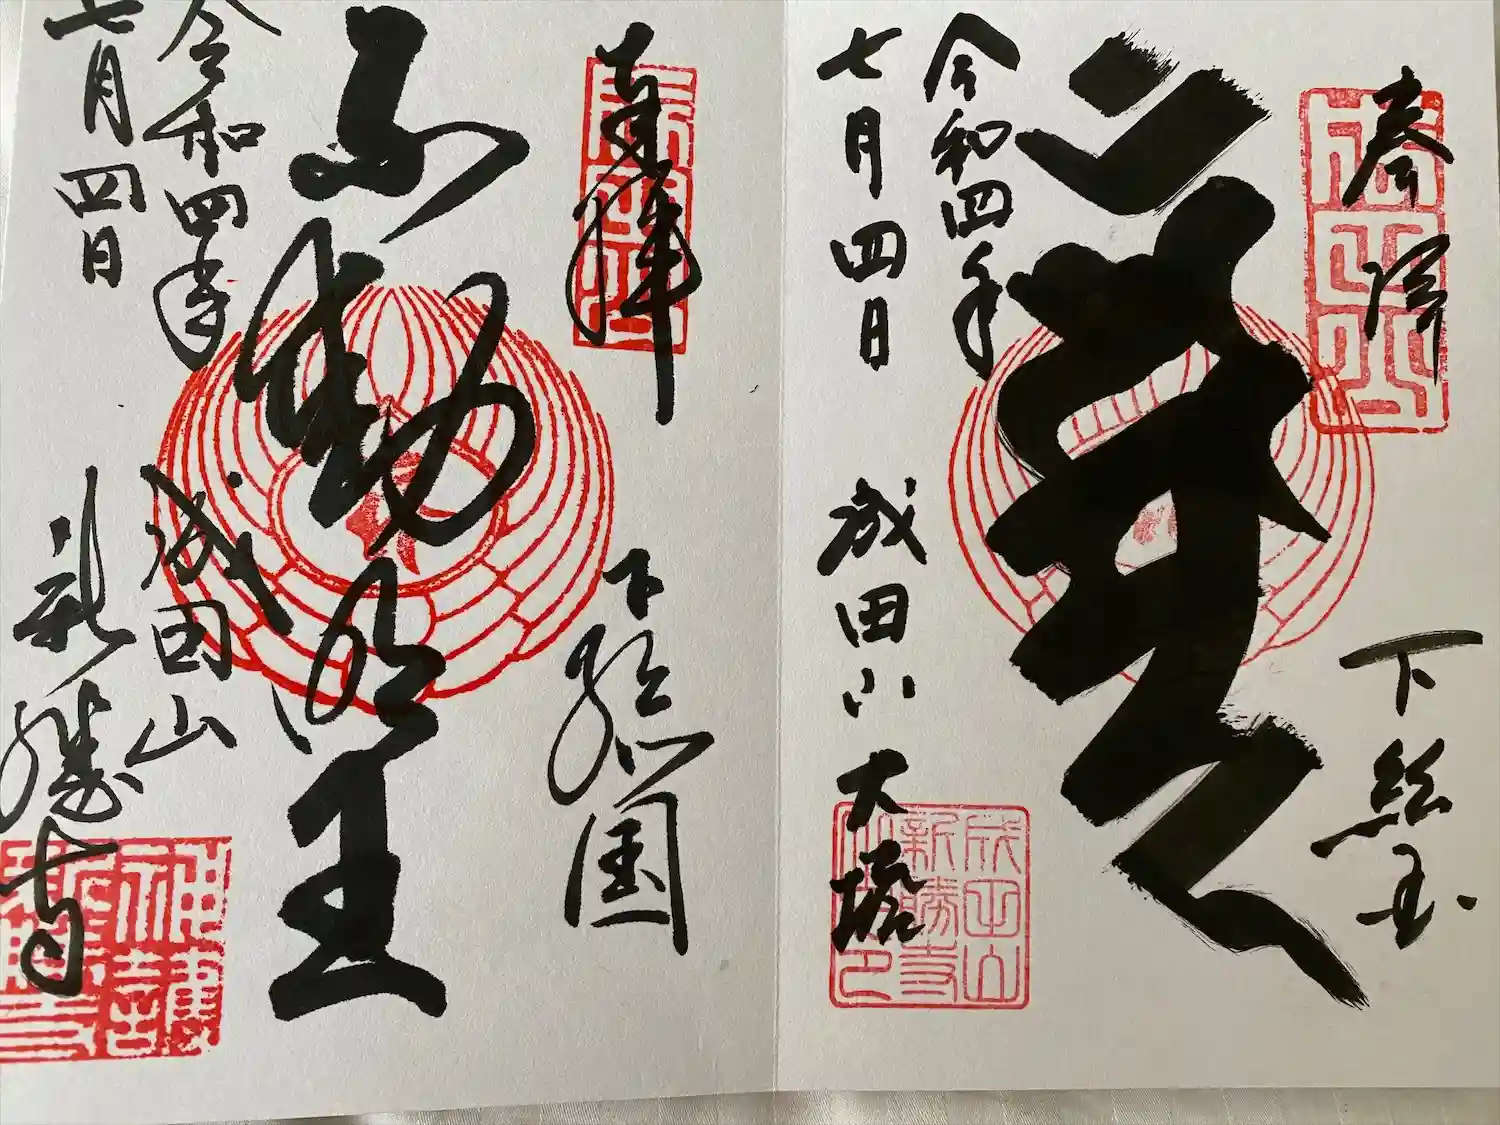 奉拝
下総国
成田山大塔
令和四年
七月四日
成田山
新勝寺
奉拝
成田山
下総国
不動明王
令和四年
七月四日
成田山
新勝寺